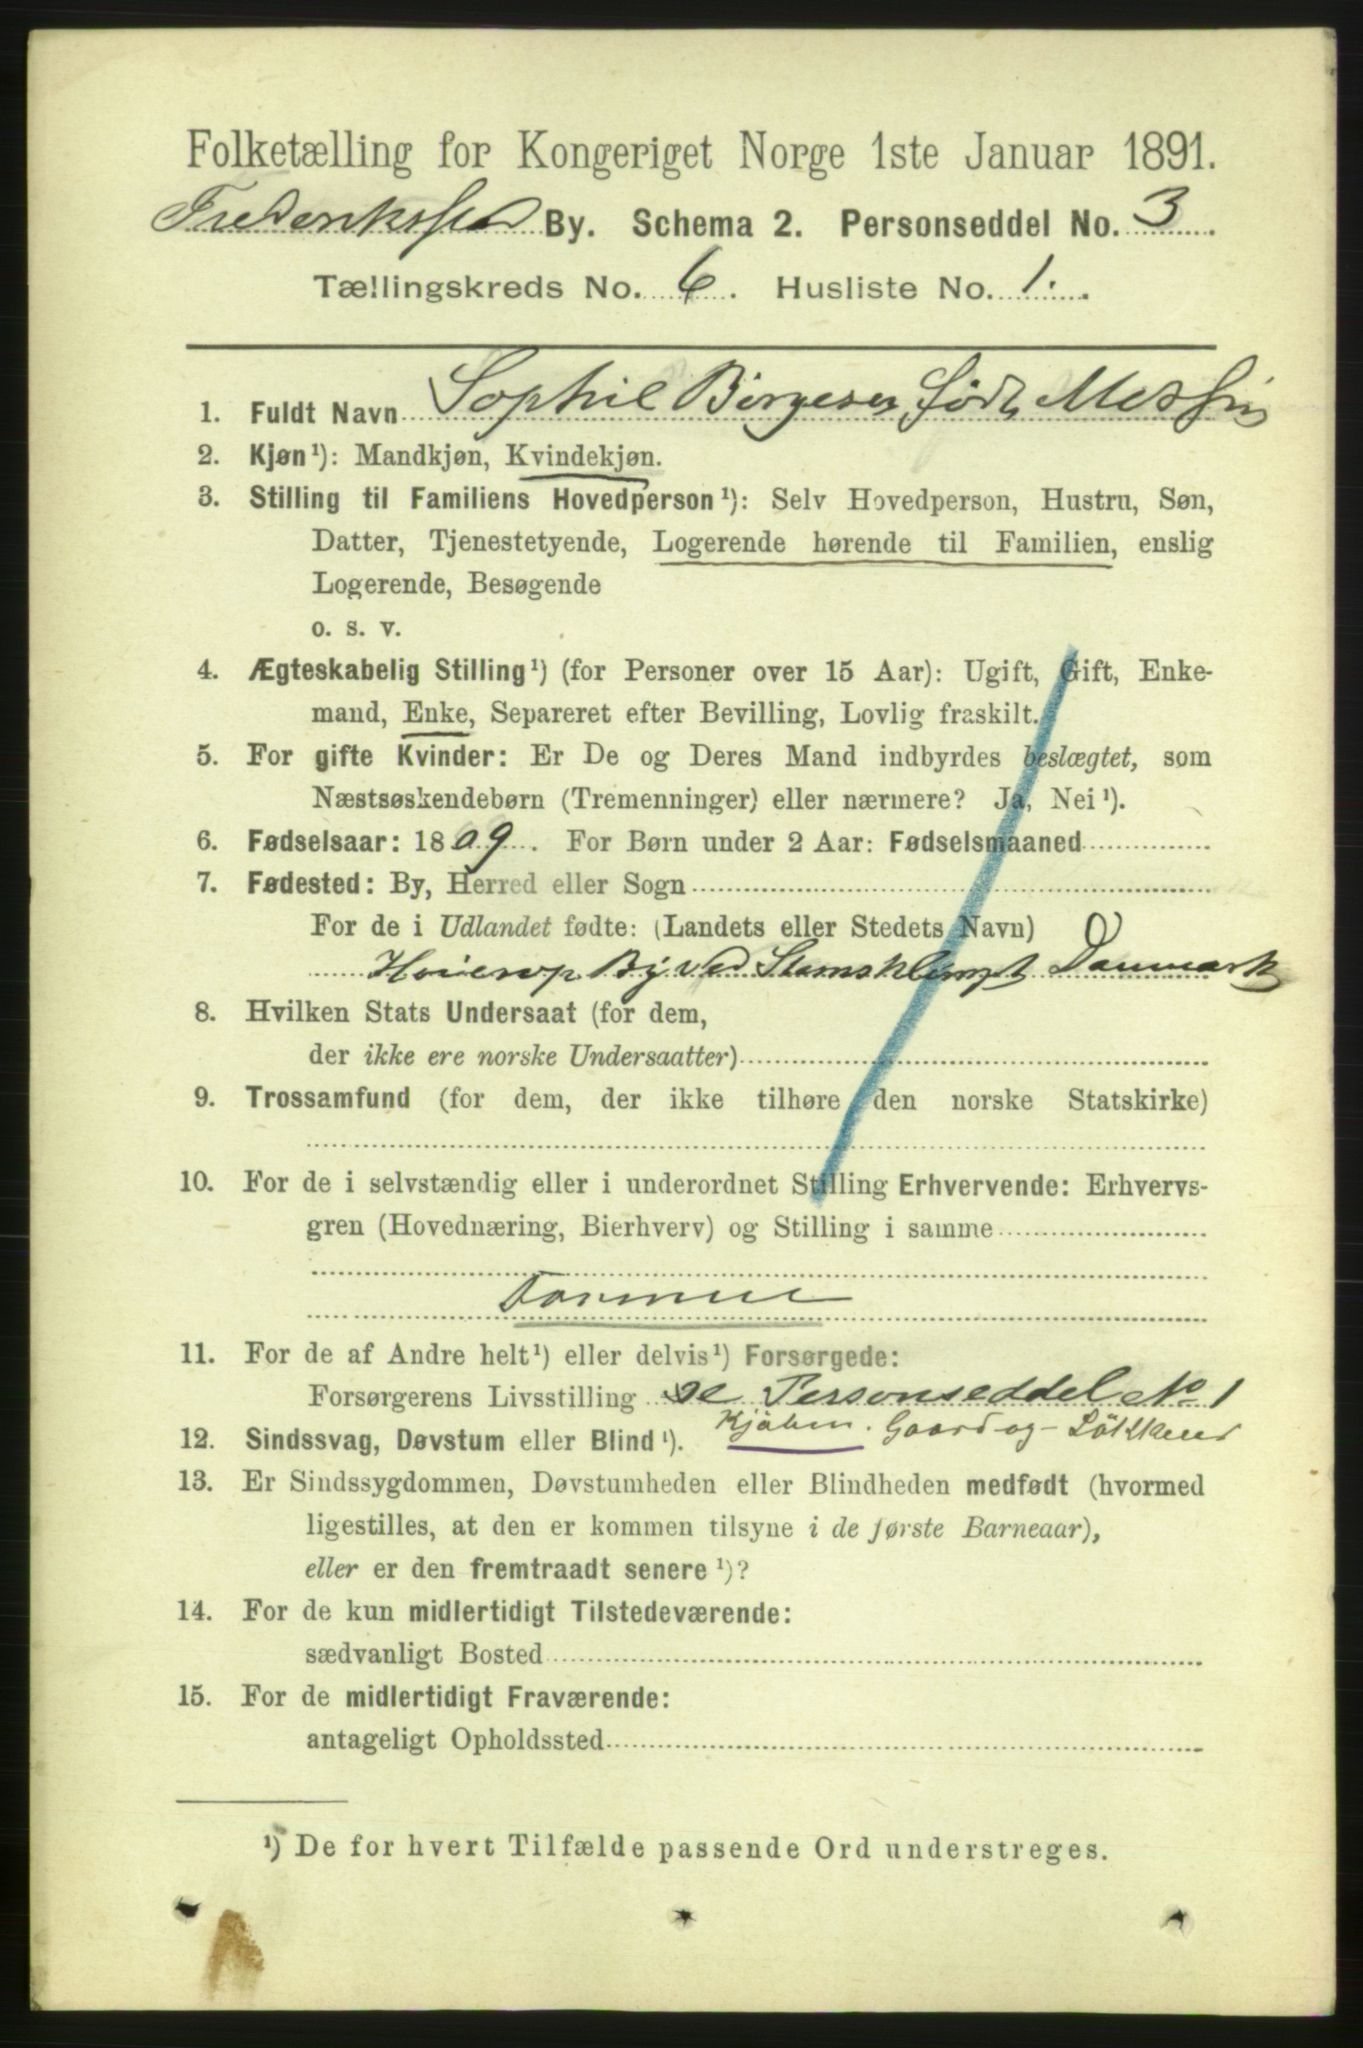 Folketælling for Kongeriget Norge 1ste Januar 1891.
Frederiksstad By. Schema 2. Personseddel No. 3.
Tællingskreds No. 6. Husliste No. 1.
1. Fuldt Navn Sophie Børgesen, født
2. Kjøn¹): Mandkjøn, Kvindekjøn.
3. Stilling til Familiens Hovedperson¹): Selv Hovedperson, Hustru, Søn,
Datter, Tjenestetyende, Logerende hørende til Familien, enslig
Logerende, Besøgende
o. s. v.
4. Ægteskabelig Stilling¹) (for Personer over 15 Aar): Ugift, Gift, Enke-
mand, Enke, Separeret efter Bevilling, Lovlig fraskilt.
5. For gifte Kvinder: Er De og Deres Mand indbyrdes beslægtet, som
Næstsøskendebørn (Tremenninger) eller nærmere? Ja, Nei¹).
6. Fødselsaar: 1809. For Børn under 2 Aar: Fødselsmaaned
7. Fødested: By, Herred eller Sogn
For de i Udlandet fødte: (Landets eller Stedets Navn)
By ved Danmark
8. Hvilken Stats Undersaat (for dem,
der ikke ere norske Undersaatter)
9. Trossamfund (for dem, der ikke tilhøre den norske Statskirke)
10. For de i selvstændig eller i underordnet Stilling Erhvervende: Erhvervs-
gren (Hovednæring, Bierhverv) og Stilling i samme
Formue
11. For de af Andre helt¹) eller delvis¹) Forsørgede:
Forsørgerens Livsstilling se Personseddel No 1
Kjøbm. Gaard og Løkkeeier
12. Sindssvag, Døvstum eller Blind¹).
13. Er Sindssygdommen, Døvstumheden eller Blindheden medfødt (hvormed
ligestilles, at den er kommen tilsyne i de første Barneaar),
eller er den fremtraadt senere¹)?
14. For de kun midlertidigt Tilstedeværende:
sædvanligt Bosted
15. For de midlertidigt Fraværende:
antageligt Opholdssted
¹) De for hvert Tilfælde passende Ord understreges.